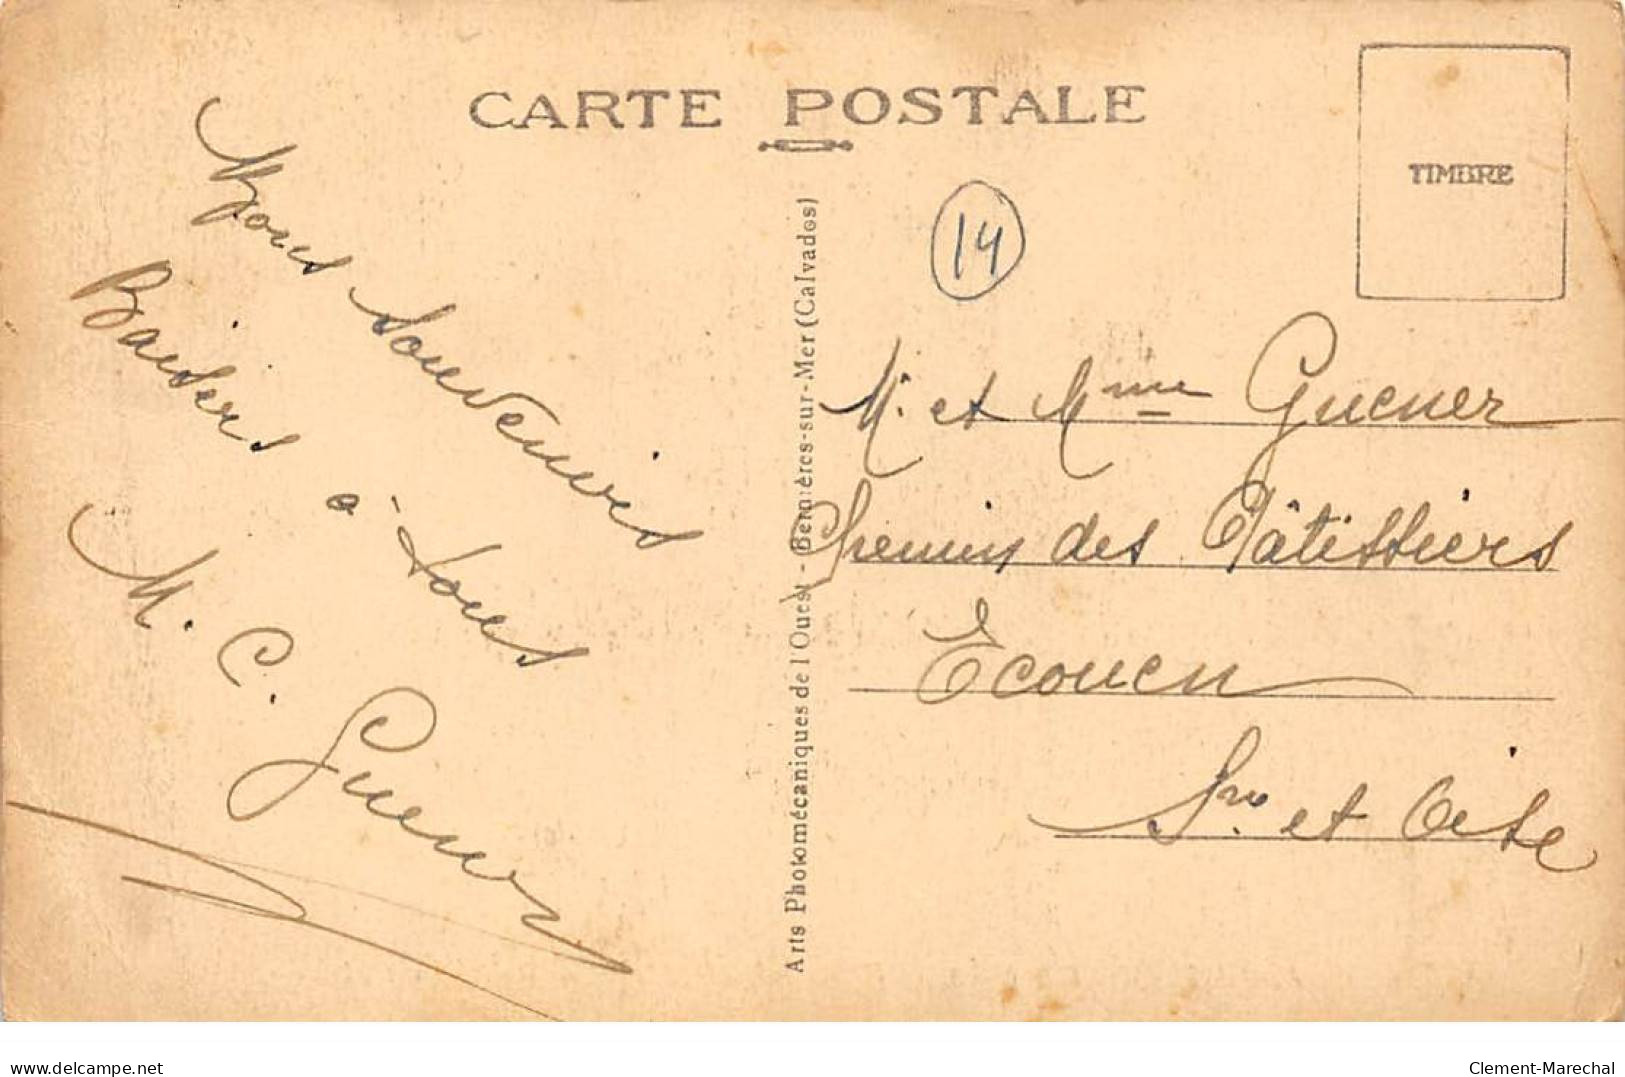 CARTE POSTALE
TIMBRE
14
Bons Souvenirs
Baisers à tous
M. C. Guener
Arts Photomécaniques de l'Ouest - Bernières-sur-Mer (Calvados)
M. et Mme Guener
Chemin des Pâtissiers
Ecouen
S. et Oise
www.delcampe.net
Clement-Marechal